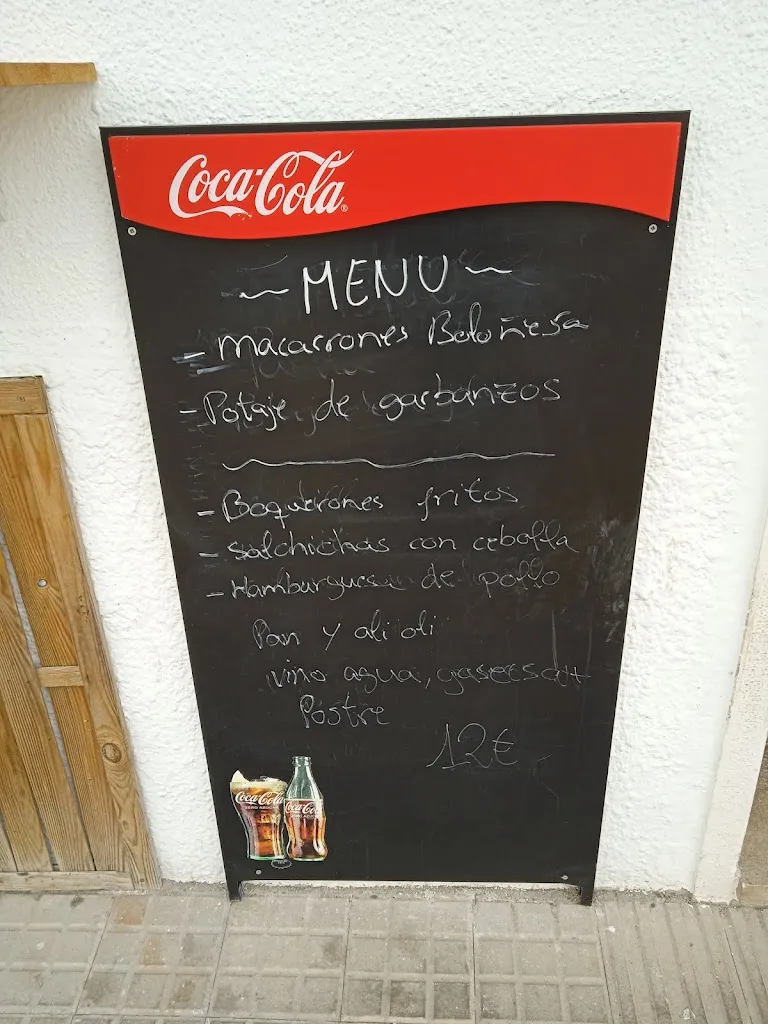 Coca-Cola®
~ MENU ~
- Macarrones Boloñesa
- Potaje de garbanzos
- Boquerones fritos
- Salchichas con cebolla
- Hamburguesa de pollo
Pan y alioli
vino agua, gaseosa
Postre
12€
Coca-Cola
Coca-Cola